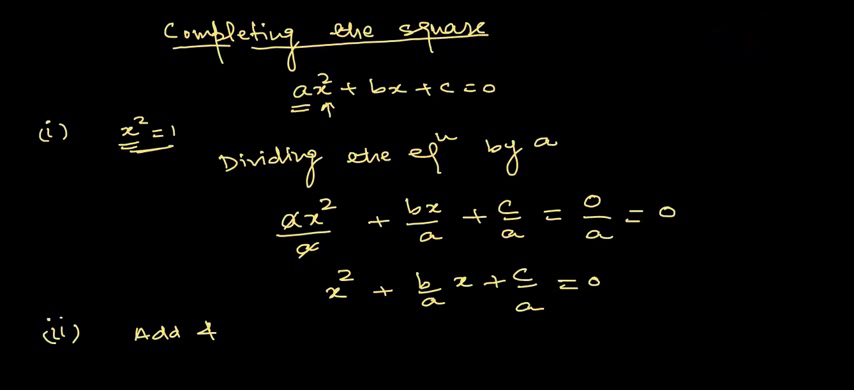 Completing the square
ax² + bx + c = 0
(i) x² = 1
Dividing the eqⁿ by a
ax²/a + bx/a + c/a = 0/a = 0
x² + b/a x + c/a = 0
(ii) Add &